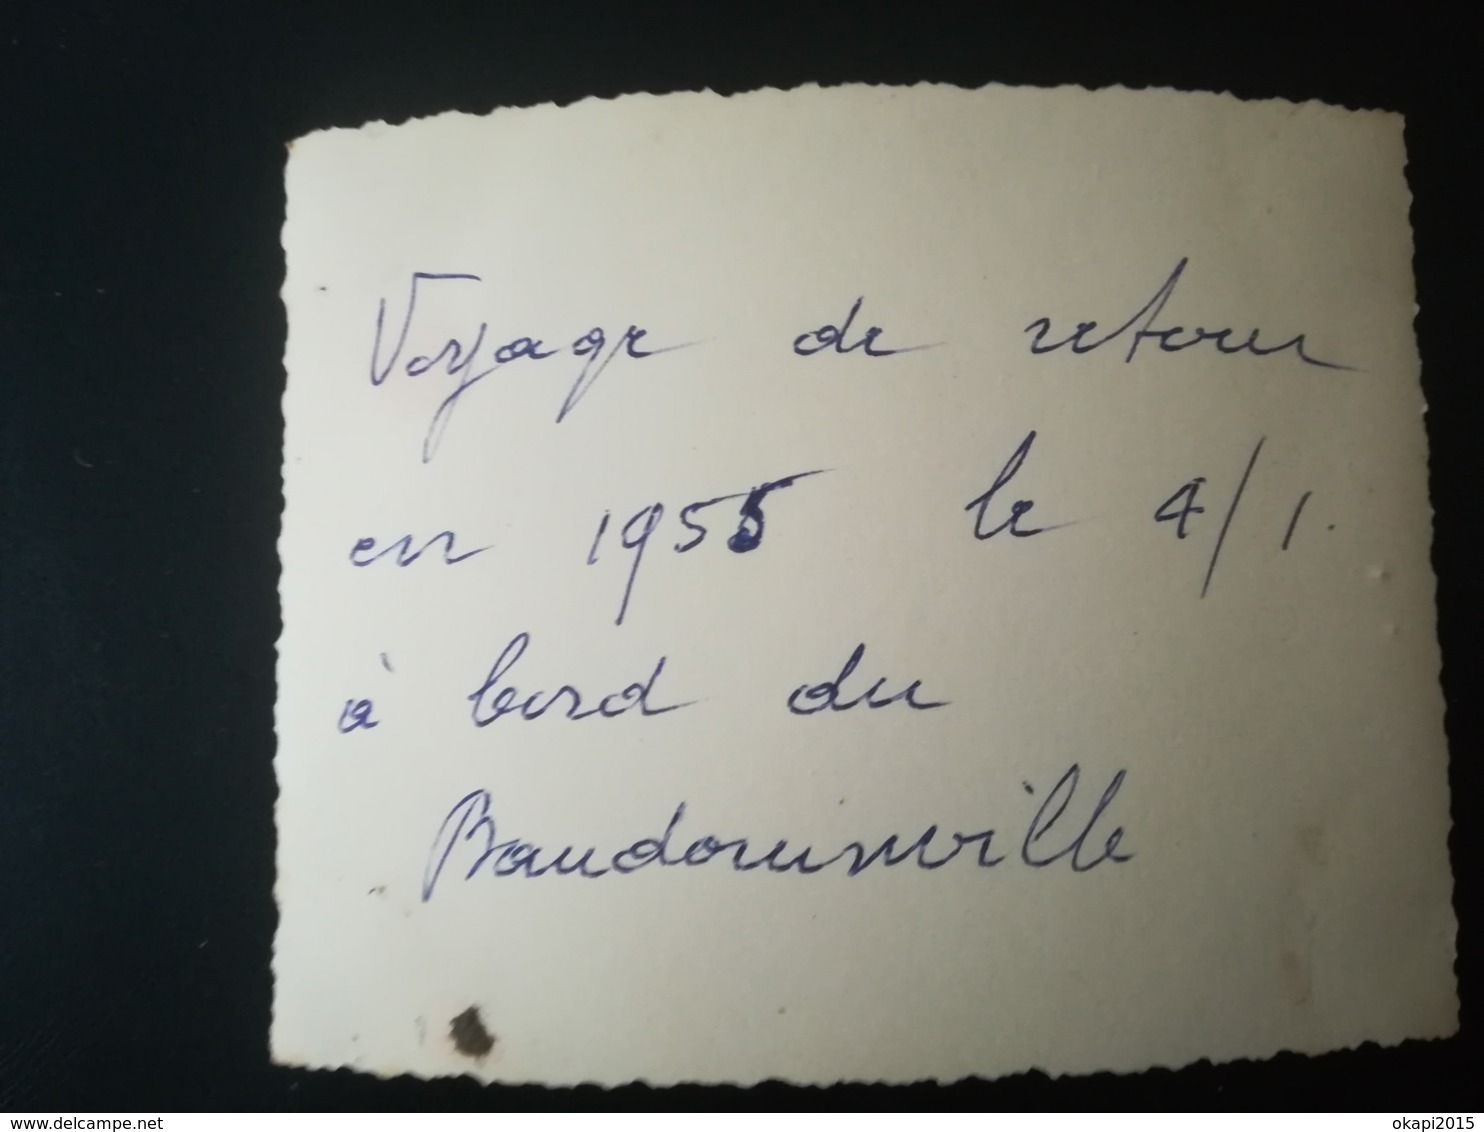 Voyage de retour
en 1955 le 4/1.
à bord du
Baudouinville
delcampe.net
okapi2015